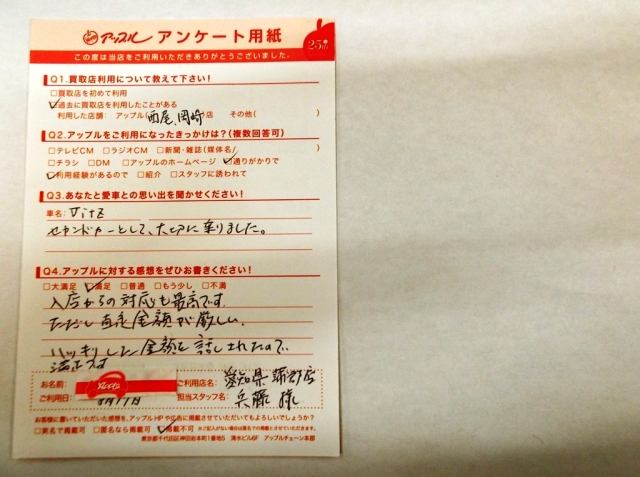 アップル アンケート用紙
25th
この度は当店をご利用いただきありがとうございました。
Q1.買取店利用について教えて下さい!
□買取店を初めて利用
□過去に買取店を利用したことがある
利用した店舗: アップル 西尾、岡崎 店 その他( )
Q2.アップルをご利用になったきっかけは?(複数回答可)
□テレビCM □ラジオCM □新聞・雑誌(媒体名/ )
□チラシ □DM □アップルのホームページ □通りがかりで
□利用経験があるので □紹介 □スタッフに誘われて
Q3.あなたと愛車との思い出を聞かせください!
車名: Vitz
セカンドカーとして、大切に乗りました。
Q4.アップルに対する感想をぜひお書きください!
□大満足 □満足 □普通 □もう少し □不満
入店からの対応も最高です。
ただし 金額が厳しい。
ハッキリした金額を話しされたので、
満足です
お名前: ご利用店名: 愛知県蒲郡店
ご利用日: 8月11日 担当スタッフ名: 兵藤 様
お客様に書いていただいた感想を、アップルHPや広告に掲載させていただいてもよろしいでしょうか?
□実名で掲載可 □匿名なら掲載可 □掲載不可 ※ご記入がない場合は匿名での掲載とさせていただきます。
東京都千代田区神田岩本町1番地5 清水ビル6F アップルチェーン本部